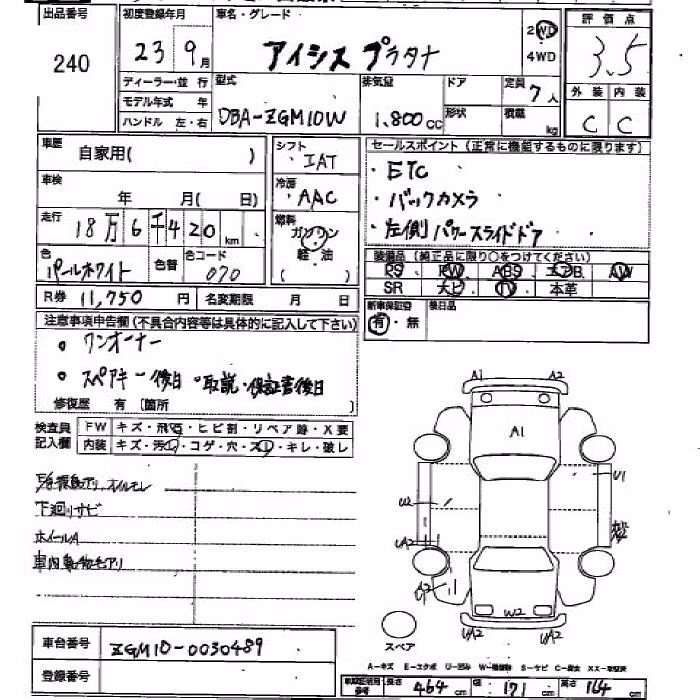 出品番号 初度登録年月 車名・グレード 2WD 評価点
240 23 9月 アイシス プラタナ 4WD 3.5
ディーラー・並行 型式 排気量 ドア 定員 7人 外装 内装
モデル年式 年 DBA-ZGM10W 1,800cc 形状 積載 kg C C
ハンドル 左・右
車歴 自家用( ) シフト IAT セールスポイント(正常に機能するものに限ります)
車検 年 月( 日) 冷房 AAC ・ETC
・バックカメラ
走行 18万6千420km 燃料 ガソリン 軽・油 ( ) ・左側パワースライドドア
色 パールホワイト 色替 色コード 070 装備品(純正品に限り○をつけてください)
PS PW ABS エアB AW
SR ナビ TV 本革
R券 11,750円 名変期限 月 日 新車保証書 有・無 検日品
注意事項申告欄(不具合内容等は具体的に記入して下さい)
・ワンオーナー
・スペアキー後日・取説・保証書後日
修復歴 有(箇所 )
検査員記入欄 FW キズ・飛石・ヒビ割・リペア跡・X要
内装 キズ・汚れ・コゲ・穴・スレ・キレ・破レ
下廻りサビ
ホイールA
A1 A2
A1
U2 U1
UA2
W2
UA2 UA2
スペア
車台番号 ZGM10-0030489
登録番号
A-キズ E-エクボ U-凹み S-サビ C-腐食
長さ 464cm 幅 171cm 高さ 164cm